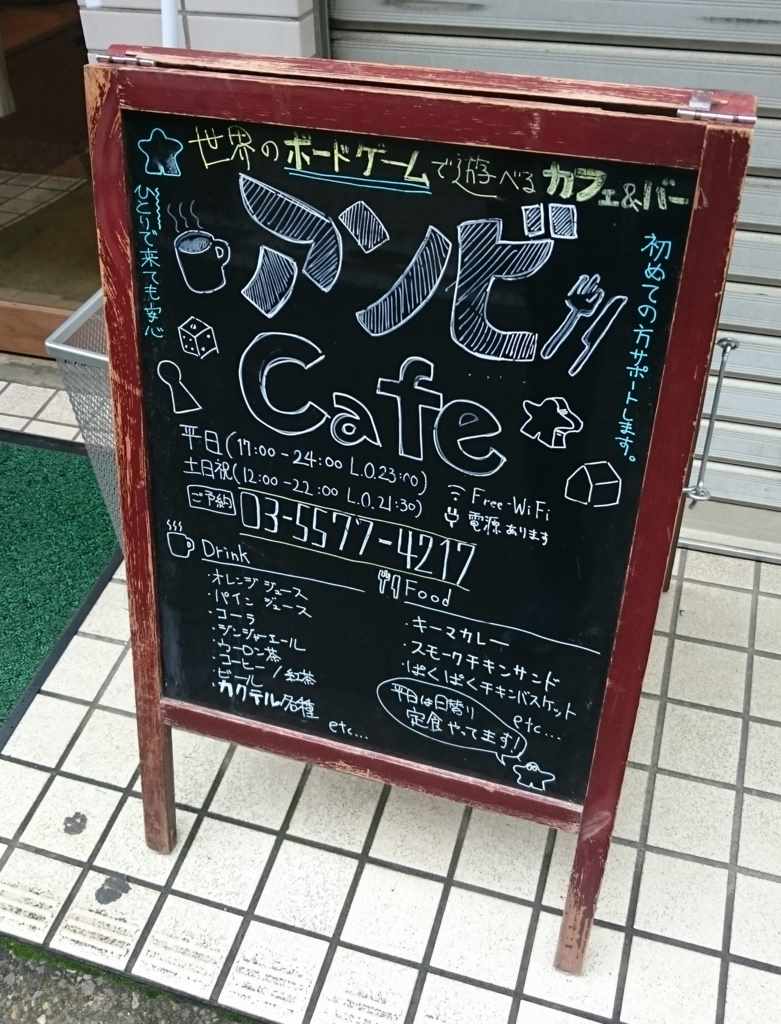 世界のボードゲームで遊べるカフェ&バー
ひとりで来ても安心
アンビ
Cafe
初めての方サポートします。
平日(17:00-24:00 L.O.23:00)
土日祝(12:00-22:00 L.O.21:30)
ご予約 03-5577-4217
Free-WiFi
電源あります
Drink
・オレンジジュース
・パインジュース
・コーラ
・ジンジャーエール
・ウーロン茶
・コーヒー/紅茶
・ビール
・カクテル各種
etc...
Food
・キーマカレー
・スモークチキンサンド
・ぱくぱくチキンバスケット
etc...
平日は日替り
定食やってます!